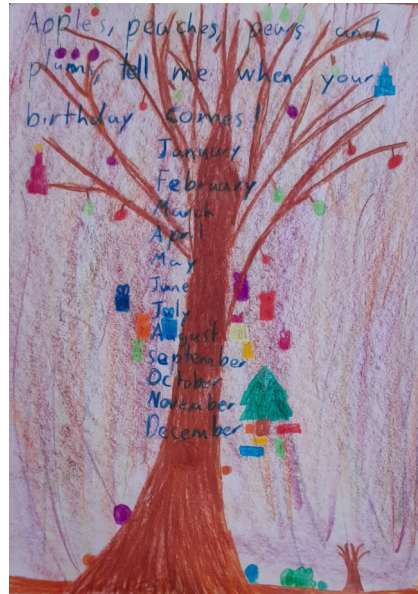 Apples, peaches, pears and
plums, tell me when your
birthday comes!
January
February
March
April
May
June
July
August
September
October
November
December